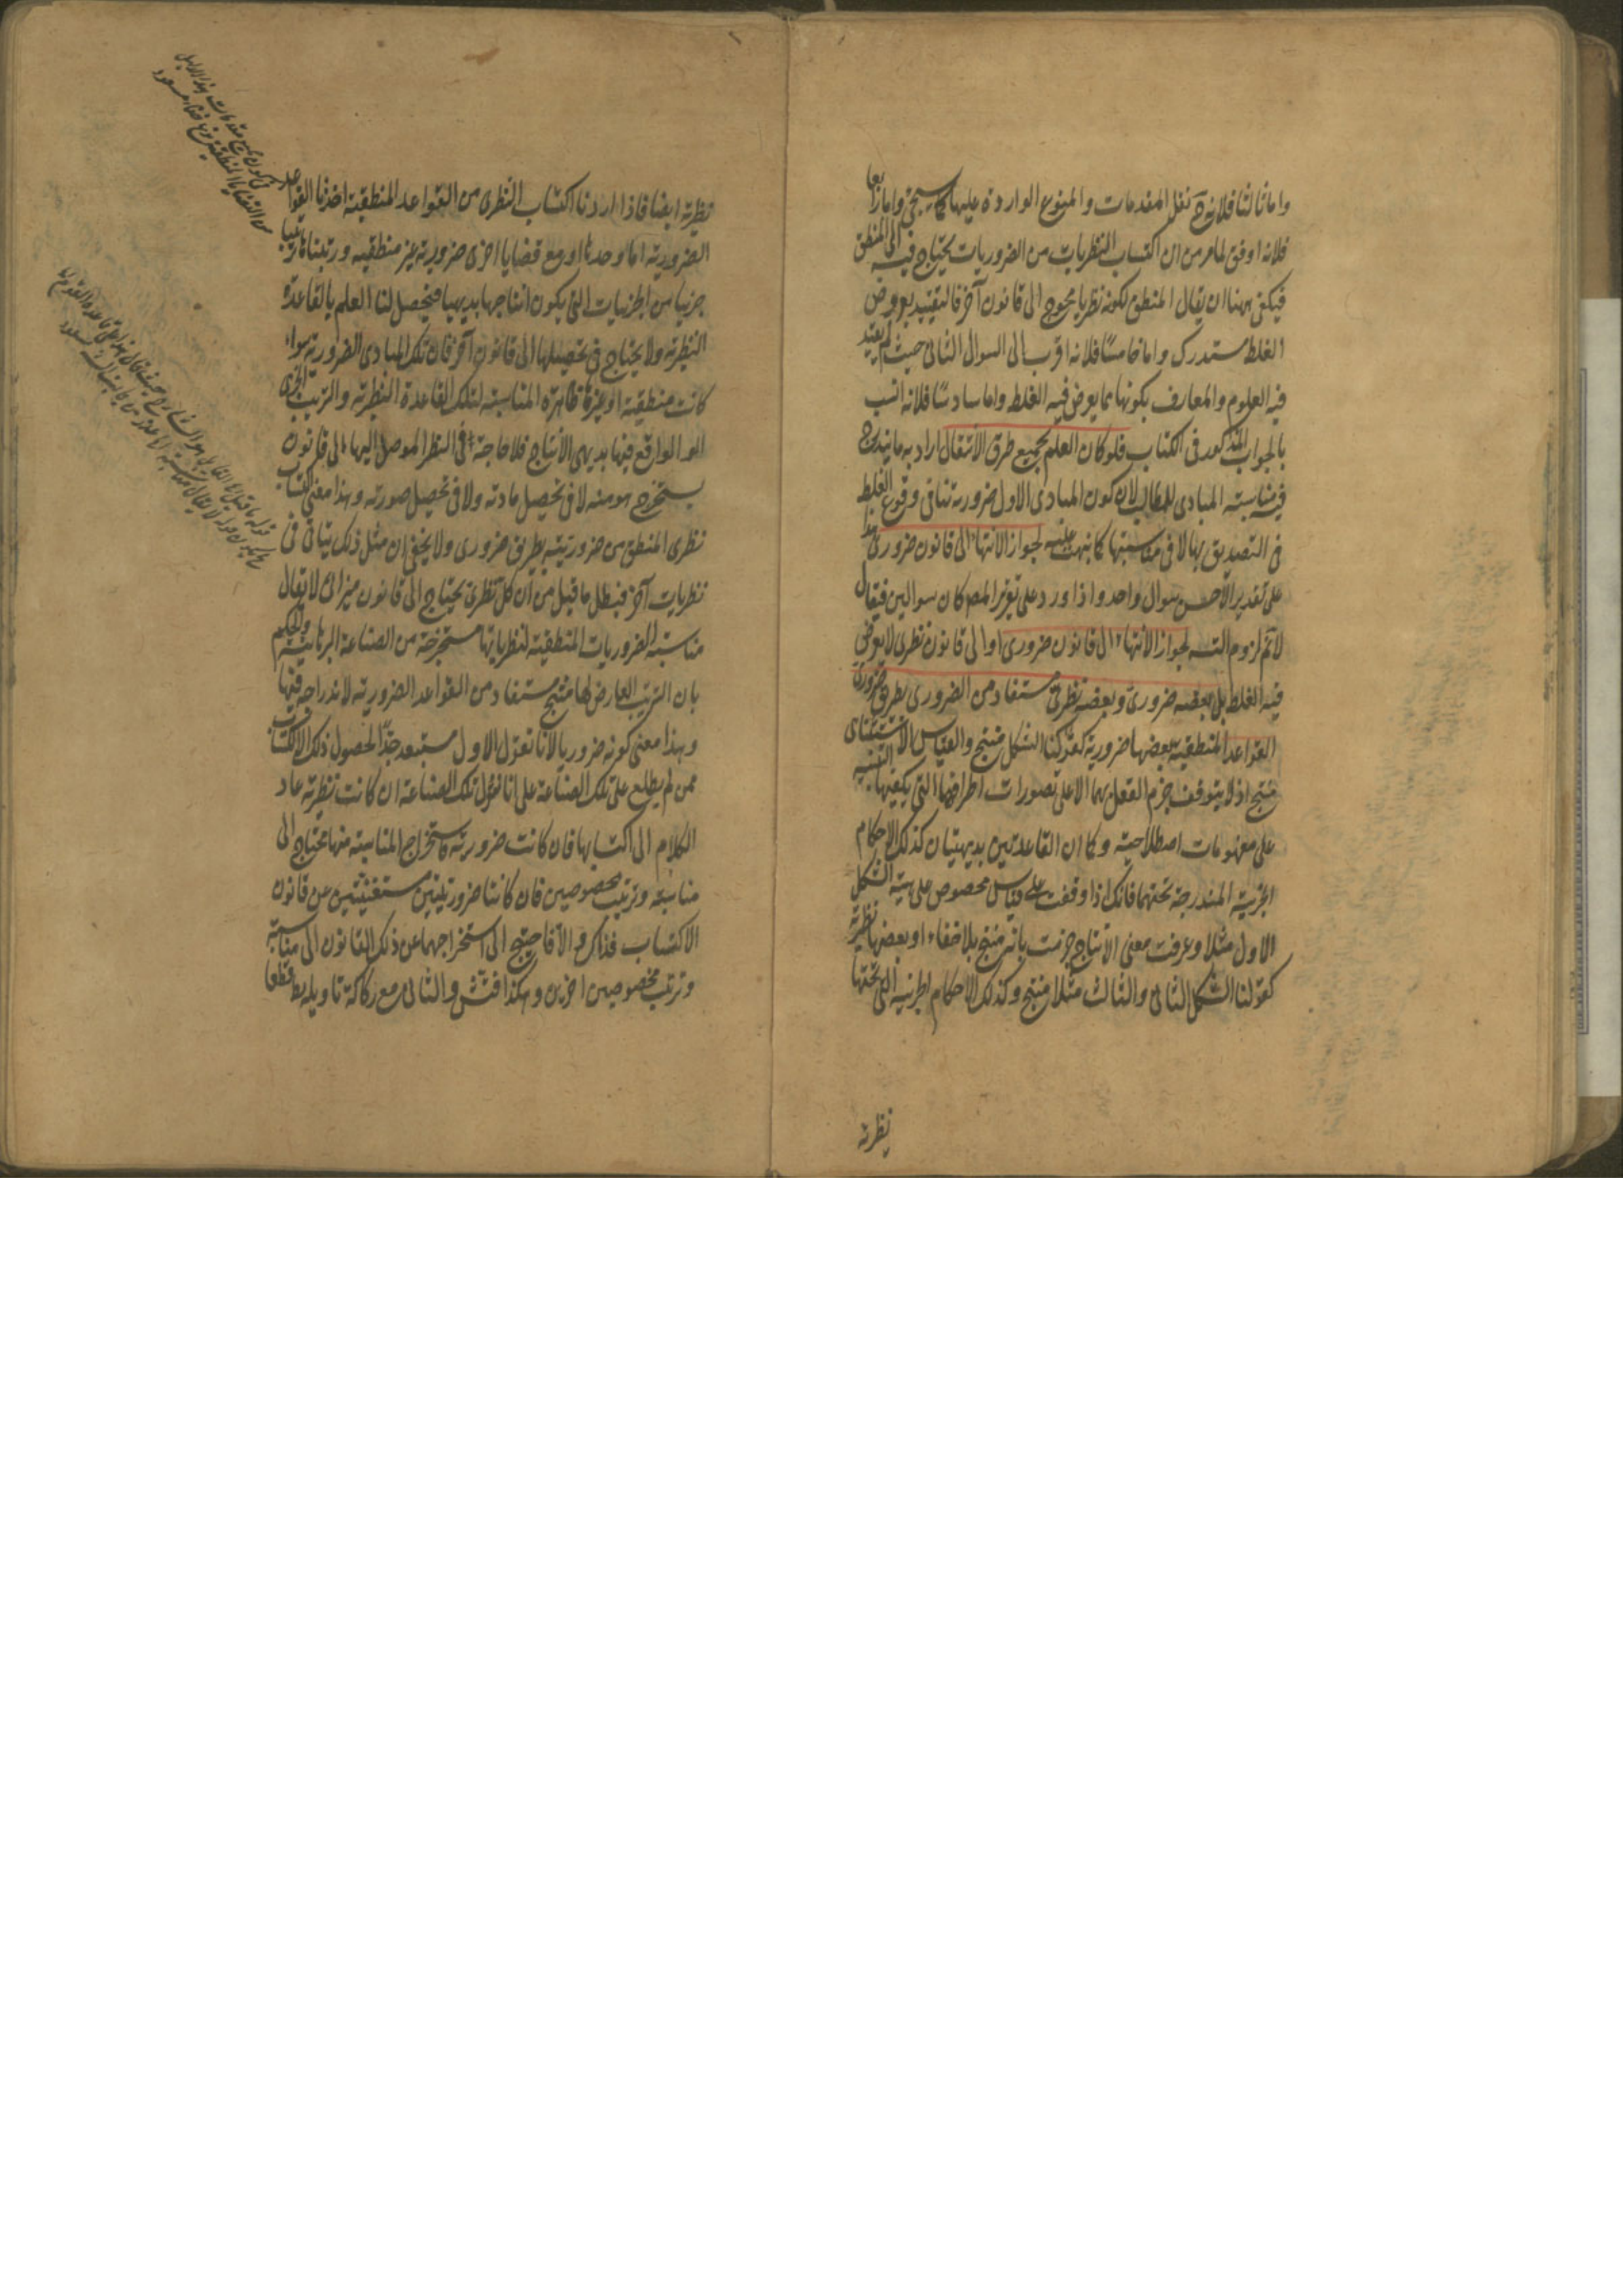 واما ثالثا فلانه ح نقل المقدمات والمنوع الواردة عليها كما سيجئ واما رابعا
فلانه اوفق لما مر من ان اكتساب النظريات من الضروريات يحتاج فيه الى المنطق
فيكفي ههنا ان يقال المنطق لكونه نظريا محوج الى قانون آخر فالتقييد بعروض
الغلط مستدرك واما خامسا فلانه اقرب الى السوال الثاني حيث لم يقيد
فيه العلوم والمعارف بكونها مما يعرض فيه الغلط واما سادسا فلانه انسب
بالجواب المذكور في الكتاب فلو كان العلم بجميع طرق الانتقال اراد به ما يندرج
فيه مناسبة المبادى للمطالب لان كون المبادى الاول ضرورية تنافى وقوع الغلط
في التصديق بها لا في مناسبتها كما نبهت عليه لجواز الانتهاء الى قانون ضروري هذا
على تقدير الاحسن سوال واحد واذا ورد على تقرير المصـ كان سوالين فيقال
لا تم لزوم التسـ لجواز الانتهاء الى قانون ضروري او الى قانون نظري لا يعرض
فيه الغلط بل بعضه ضروري وبعضه نظري مستفاد من الضروري بطريق ضروري
القواعد المنطقية بعضها ضرورية كقولنا الشكل منتج والقياس الاستثنائى
منتج اذ لا يتوقف جزم العقل بهما الا على تصورات اطرافهما التي يكفيها التنبيه
على مفهومات اصطلاحية وكما ان القاعدتين بديهيتان كذلك الاحكام
الجزئية المندرجة تحتهما فانك اذا وقفت على قياس مخصوص على هيئة الشكل
الاول مثلا وعرفت معنى الانتاج جزمت بانه منتج بلا خفاء وبعضها نظرية
كقولنا الشكل الثاني والثالث مثلا منتج وكذلك الاحكام الجزئية التي تحتها
نظرية
نظرية ايضا فاذا اردنا اكتساب النظري من القواعد المنطقية اخذنا القواعد
الضرورية اما وحدها او مع قضايا اخرى ضرورية غير منطقيه ورتبناها ترتيبا
جزئيا من الجزئيات التي يكون انتاجها بديهيا فيحصل لنا العلم بالقاعدة
النظرية ولا يحتاج في تحصيلها الى قانون آخر فان تلك المبادى الضرورية سواء
كانت منطقية او غيرها ظاهرة المناسبة لتلك القاعدة النظرية والترتيب الجزئى
الواقع فيها بديهى الانتاج فلا حاجة في النظر الموصل اليها الى قانون
يستخرج هو منه لا في تحصيل مادته ولا في تحصيل صورته وهذا معنى اكتساب
نظرى المنطق من ضروريته بطريق ضروري ولا يخفى ان مثل ذلك يتأتى في
نظريات آخر فبطل ما قيل من ان كل نظرى يحتاج الى قانون ميزانى لا يقال
مناسبة الضروريات المنطقية لنظرياتها مستخرجة من الصناعة البرهانية والحكم
بان الترتيب العارض لها منتج مستفاد من القواعد الضرورية لاندراجه فيها
وهذا معنى كونه ضروريا لانا نقول الاول مستبعد جدا لحصول ذلك الاكتساب
ممن لم يطلع على تلك الصناعة على انا نقول تلك الصناعة ان كانت نظرية عاد
الكلام الى اكتسابها فان كانت ضرورية فاستخراج المناسبة منها محتاج الى
مناسبة وترتيب مخصوصين فان كانتا ضروريتين مستغنيتين عن قانون
الاكتساب فذاك والا فاحتيج الى استخراجهما عن ذلك القانون الى مناسبة
وترتيب مخصوصين اخرين وهكذا فتش والثاني مع ركاكة تاويله بط قطعا